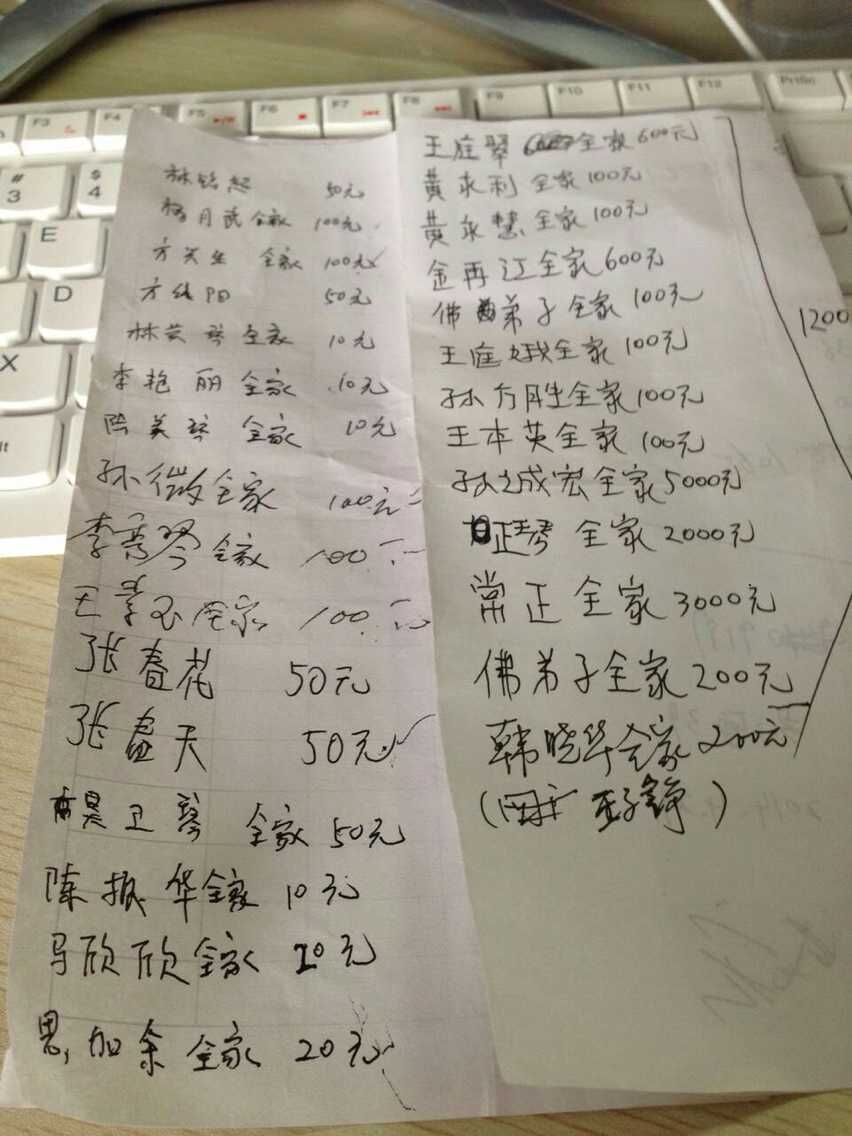 50元
月 全家 100元
方 生 全家 100元
方 阳 50元
林英琴全家 10元
李艳丽全家 10元
陈美琴 全家 10元
孙微全家 100元
李秀琴全家 100元
王 玉全家 100元
张春花 50元
张春天 50元
卫琴 全家 50元
陈振华全家 10元
马欣欣全家 20元
加余 全家 20元
王庭琴 全家600元
黄永利 全家100元
黄永慧 全家100元
金再江全家600元
佛 弟子 全家 100元
王庭娥全家 100元
孙方胜全家100元
王本英全家 100元
孙成宏全家5000元
正琴 全家 2000元
常正 全家 3000元
佛弟子全家 200元
韩晓华全家 200元
1200
F3
F5
F6
F7
F8
F9
F10
F11
F12
PrtSc
#
3
$
4
E
D
X